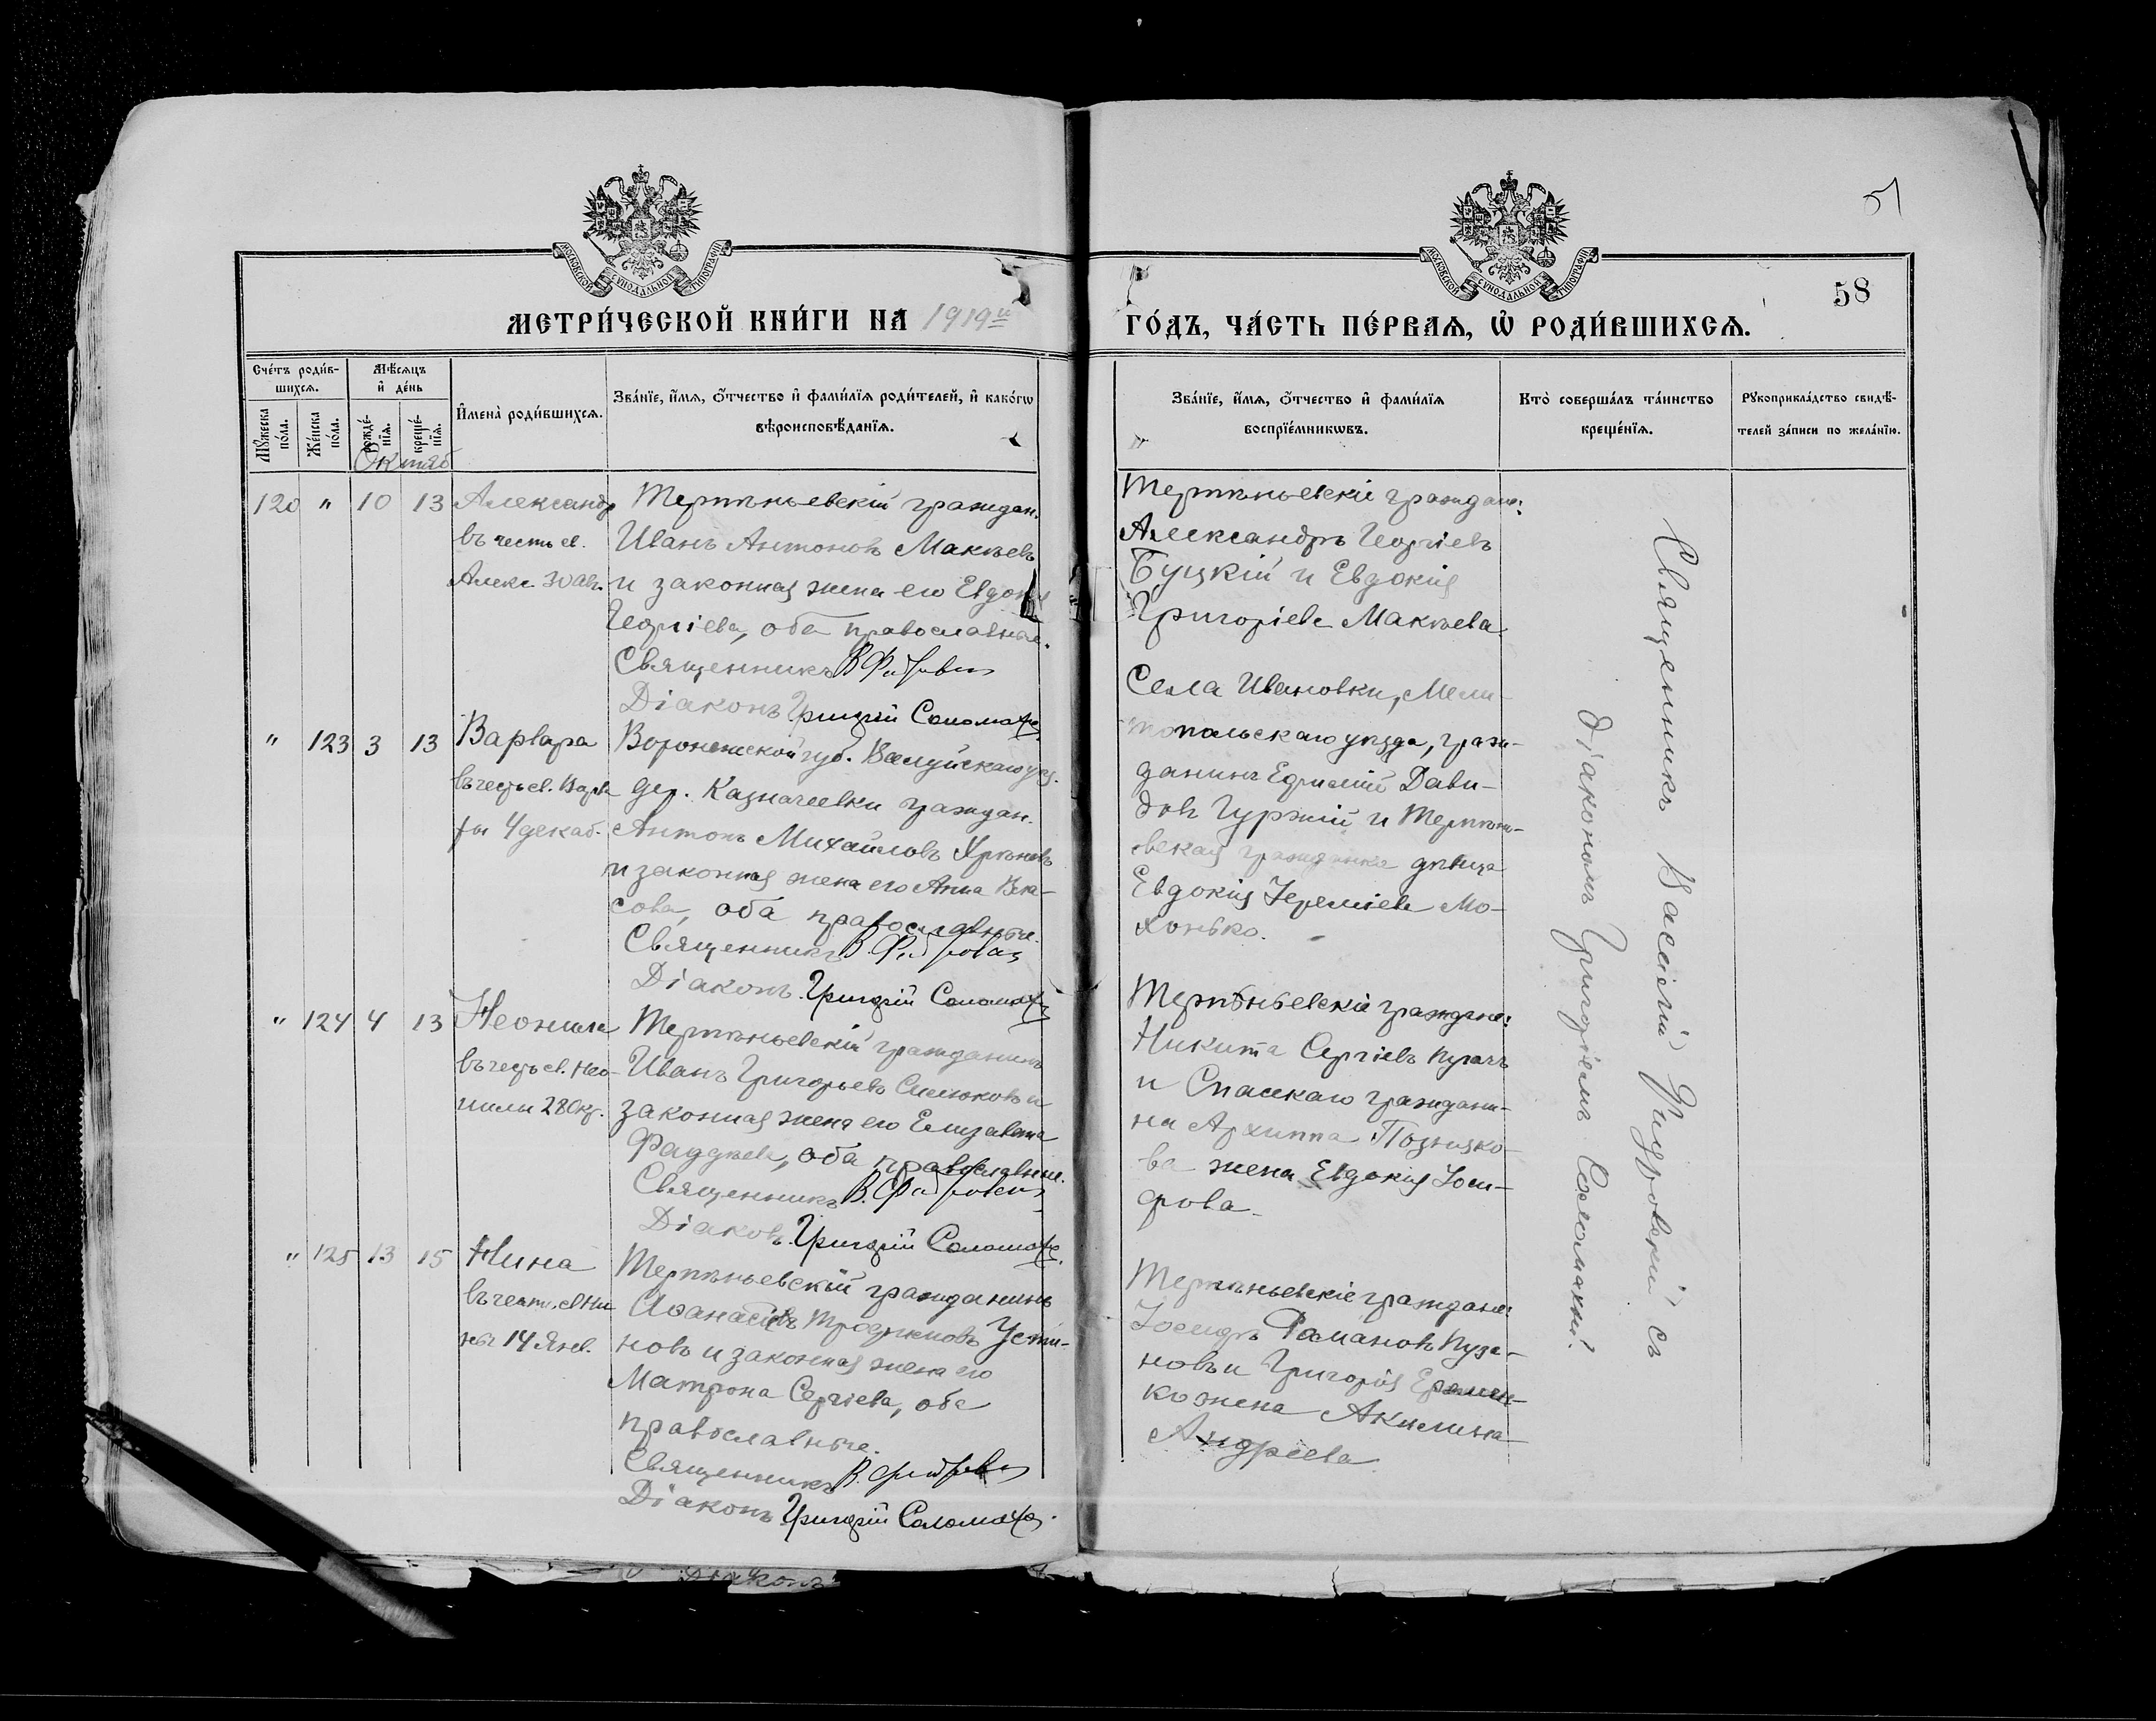 51
58
МОСКОВСКОЙ СѴНОДАЛЬНОЙ ТИПОГРАФІИ
МОСКОВСКОЙ СѴНОДАЛЬНОЙ ТИПОГРАФІИ
МЕТРИ́ЧЕСКОЙ КНИ́ГИ НА 1919й
ГО́ДЪ, ЧА́СТЬ ПЕ́РВАѦ, Ѡ҆ РОДИ́ВШИХСѦ.
Сче́тъ роди́в-
шихсѧ.
Мꙋ́жеска по́ла.
Же́нска по́ла.
Мѣ́сѧцъ
и҆ де́нь
рожде́-
нїѧ.
креще́-
нїѧ.
Октяб
И҆мена̀ роди́вшихсѧ.
Зва́нїе, и҆́мѧ, ѻ҆́тчество и҆ фами́лїѧ роди́телей, и҆ како́гѡ
вѣроисповѣ́данїѧ.
Зва́нїе, и҆́мѧ, ѻ҆́тчество и҆ фами́лїѧ
воспрїе́мникѡвъ.
Кто̀ соверша́лъ та́инство
креще́нїѧ.
Рꙋкоприкла́дство свидѣ́-
телей за́писи по жела́нїю.
120 " 10 13
Александр
въ честь св.
Алекс. 30 Авг.
Терпѣньевскій граждан.
Иванъ Антоновъ Макѣевъ
и законная жена его Евдокія
Георгіева, оба православные.
Священникъ В.
Діаконъ Григорій Соломаха.
Терпѣньевскіе граждане:
Александръ Георгіевъ
Буцкій и Евдокія
Григоріева Макѣева.
" 123 3 13
Варвара
въ честь св. Варва
ры 4 декаб.
Воронежской губ. Валуйскаго уѣз.
дер. Казначеевки граждан.
Антонъ Михайловъ Хрѣновъ
и законная жена его Анна Вла-
сова, оба православные.
Священникъ В.
Діаконъ Григорій Соломаха
Села Ивановки, Мели-
топольскаго уѣзда, граж-
данинъ Ефимій Дави-
довъ Гуржій и Терпѣнь-
евская гражданка дѣвица
Евдокія Іереміева Мо-
хонько.
" 124 4 13
Неонила
въ честь св. Нео-
нилы 28 Окт.
Терпѣньевскій гражданинъ
Иванъ Григорьевъ и
законная жена его Елизавета
Фаддѣева, оба православные.
Священникъ В.
Діаконъ Григорій Соломаха.
Терпѣньевскіе граждане:
Никита Сергіевъ Пугачъ
и Спасскаго граждани-
на Архиппа
ва жена Евдокія Іоси-
фова.
" 125 13 15
Нина
въ честь св. Ни
ны 14 Янв.
Терпѣньевскій гражданинъ
Аѳанасій Трофимовъ Усти-
новъ и законная жена его
Матрона Сергіева, оба
православные.
Священникъ В.
Діаконъ Григорій Соломаха.
Терпѣньевскіе граждане:
Іосифъ Романовъ Пуза-
новъ и Григорія Еремен-
ко жена Акилина
Андреева.
Священникъ Василій съ
діакономъ Григоріемъ Соломахой.
Діаконъ